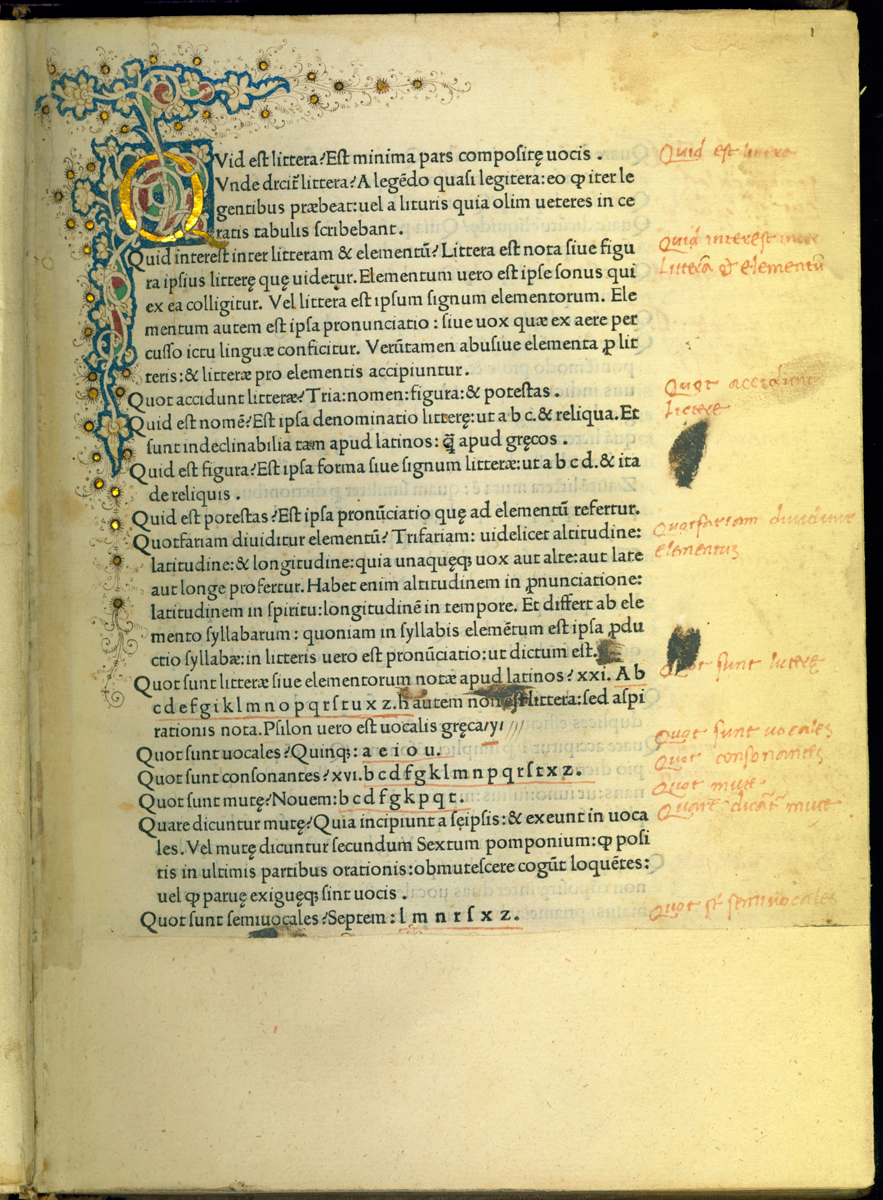 1
QVid eſt littera? Eſt minima pars compoſitę uocis .
Vnde drcit̃ littera? A legēdo quaſi legitera: eo ꝙ iter le
gentibus præbeat: uel a lituris quia olim ueteres in ce
ratis tabulis ſcribebant.
Quid intereſt inter litteram & elementū? Littera eſt nota ſiue figu
ra ipſius litterę quę uidetur. Elementum uero eſt ipſe ſonus qui
ex ea colligitur. Vel littera eſt ipſum ſignum elementorum. Ele
mentum autem eſt ipſa pronunciatio : ſiue uox quæ ex aere per
cuſſo ictu linguæ conficitur. Verūtamen abuſiue elementa ꝓ lit
teris: & litteræ pro elementis accipiuntur.
Quot accidunt litteræ? Tria: nomen: figura: & poteſtas .
Quid eſt nomē? Eſt ipſa denominatio litterę: ut a b c. & reliqua. Et
ſunt indeclinabilia tam apud latinos: q̃ꝫ apud gręcos .
Quid eſt figura? Eſt ipſa forma ſiue ſignum litteræ: ut a b c d. & ita
de reliquis .
Quid eſt poteſtas? Eſt ipſa pronūciatio quę ad elementū refertur.
Quotfariam diuiditur elementū? Trifariam: uidelicet altitudine:
latitudine: & longitudine: quia unaquęqꝫ uox aut alte: aut late
aut longe profertur. Habet enim altitudinem in ꝓnunciatione:
latitudinem in ſpiritu: longitudinē in tempore. Et differt ab ele
mento ſyllabarum : quoniam in ſyllabis elemētum eſt ipſa ꝓdu
ctio ſyllabæ: in litteris uero eſt pronūciatio: ut dictum eſt.
Quot ſunt litteræ ſiue elementorum notæ apud latinos? xxi. A b
c d e f g i k l m n o p q r ſ t u x z. h autem non eſt littera: ſed aſpi
rationis nota. Pſilon uero eſt uocalis gręca y
Quot ſunt uocales? Quinqꝫ: a e i o u.
Quot ſunt conſonantes? xvi. b c d f g k l m n p q r ſ t x z .
Quot ſunt mutę? Nouem: b c d f g k p q t .
Quare dicuntur mutę? Quia incipiunt a ſeipſis: & exeunt in uoca
les. Vel mutę dicuntur ſecundum Sextum pomponium: ꝙ poſi
tis in ultimis partibus orationis: obmuteſcere cogūt loquētes:
uel ꝙ paruę exiguęqꝫ ſint uocis .
Quot ſunt ſemiuocales? Septem: l m n r ſ x z .
Quid eſt
Quid intereſt
litterā & elementū
Quot accidunt
littere
Quotfariam diuiditur
elementū
ſunt littere
Quot ſunt uocales
Quot conſonantes
Quot mute
Quare dicūt mute
Quot sūt ſemiuocales